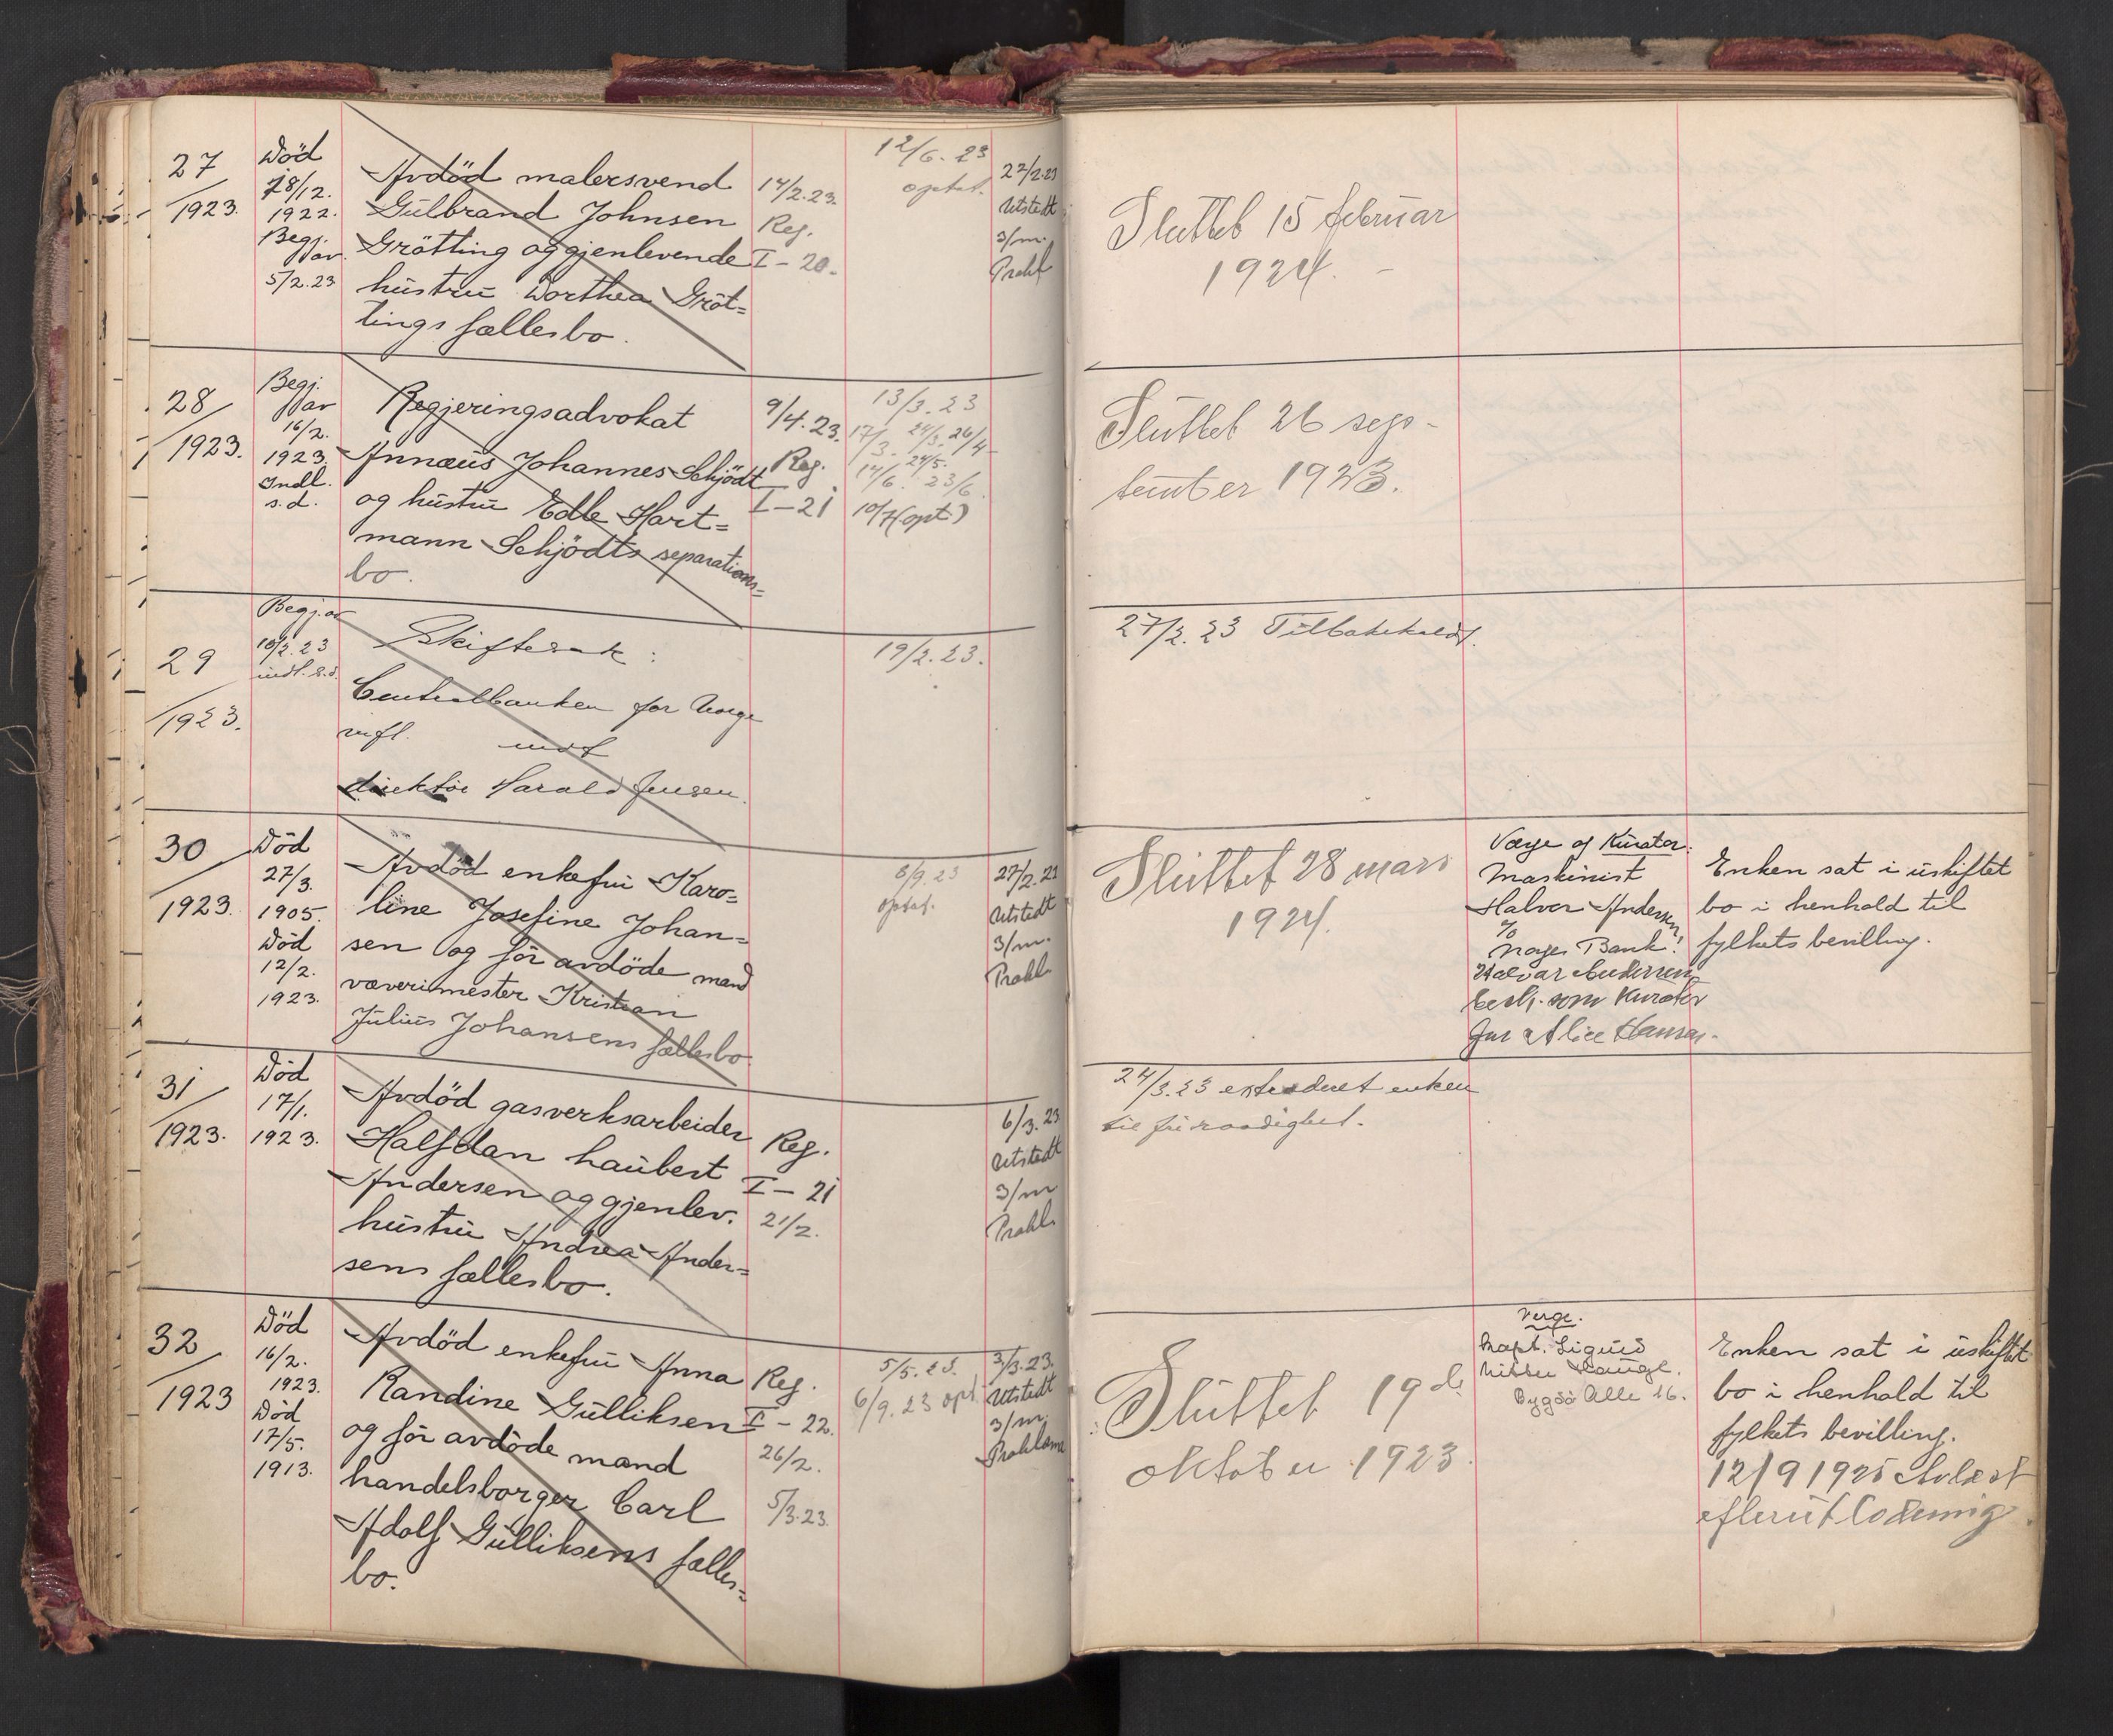 27
/1923.
Död
28/12.
1922.
Begj.
av
5/2.23
Avdöd malersvend
Gulbrand Johnsen
Grötting og gjenlevende
hustru Dorthea Gröt=
tings fællesbo.
14/2.23.
Reg.
I - 20.
12/6. 23
optat.
22/2.23
Utstedt
3/m.
Prokl
Sluttet 15 februar
1924. -
28
/1923.
Begj.
av
16/2.
1923.
Indl.
s.d.
Regjeringsadvokat
Annæus Johannes Schjödt
og hustru Edle Hart=
mann Schjödts separations=
bo.
9/4.23.
Reg.
I - 21
13/3.23
17/3. 24/3. 26/4
24/5.
14/6. 23/6.
10/7 (opt.)
Sluttet 26 sep-
tember 1923.
29
/1923.
Begj. av
10/2.23
indl. s.d.
Skiftesak:
Centralbanken for Norge
m.fl. mot
direktör Harald Jensen.
19/2.23.
27/2.23 Tilbakekaldt.
30
/1923.
Död
27/3.
1905.
Död
12/2.
1923.
Avdöd enkefru Karo=
line Josefine Johan=
sen og för avdöde mand
væverimester Kristian
Julius Johansens fællesbo.
8/9.23
optat.
27/2.23
Utstedt
3/m.
Prokl.
Sluttet 28 mars
1924.
Værge og Kurator:
Maskinist
Halvor Andersen,
%
Norges Bank!
Halvar Andersen
besk. som Kurator
for Alice Hansen.
Enken sat i uskiftet
bo i henhold til
fylkets bevilling.
31
/1923.
Död
17/1.
1923.
Avdöd gasverksarbeider
Halfdan Laubert
Andersen og gjenlev.
hustru Andrea Ander=
sens fællesbo.
Reg.
I - 21
21/2.
6/3.23
Utstedt
3/m
Prokl.
24/3.23 extraderet enken
til fri raadighet.
32
/1923
Död
16/2.
1923.
Död
17/5.
1913.
Avdöd enkefru Anna
Randine Gulliksen
og för avdöde mand
handelsborger Carl
Adolf Gulliksens fælles=
bo.
Reg.
I - 22.
26/2.
5/3.23.
5/5.23.
6/9.23 opt.
3/3.23.
Utstedt
3/m.
Proklama
Sluttet 19de
oktober 1923.
Verge.
Kapt. Sigurd
Bygdö Alle 16.
Enken sat i uskiftet
bo i henhold til
fylkets bevilling.
12/9 1925 Avlæst
efter utlodning.